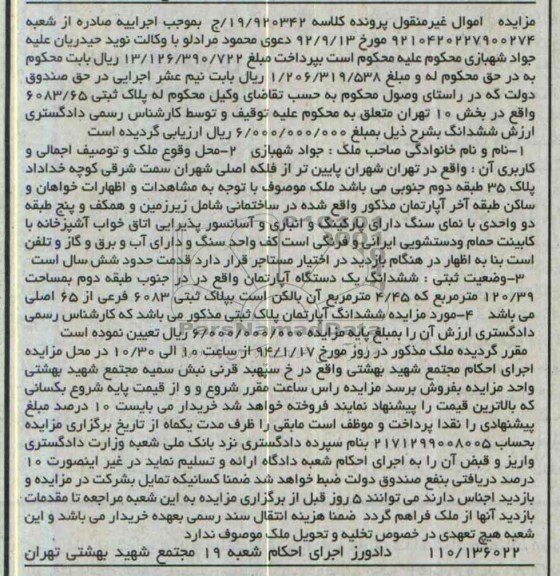 مزایده اموال غیرمنقول پرونده کلاسه ۱۹/۹۲۰۳۴۲/ج بموجب اجراییه صادره از شعبه
۹۲۱۰۴۲۰۲۲۷۹۰۰۲۷۴ مورخ ۹۲/۹/۱۳ دعوی محمود مرادلو با وکالت نوید حیدریان علیه
جواد شهبازی محکوم علیه محکوم است بپرداخت مبلغ ۱۳/۱۲۶/۳۹۰/۷۲۲ ریال بابت محکوم
به در حق محکوم له و مبلغ ۱/۲۰۶/۳۱۹/۵۳۸ ریال بابت نیم عشر اجرایی در حق صندوق
دولت که در راستای وصول محکوم به حسب تقاضای وکیل محکوم له پلاک ثبتی ۶۰۸۳/۶۵
واقع در بخش ۱۰ تهران متعلق به محکوم علیه توقیف و توسط کارشناس رسمی دادگستری
ارزش ششدانگ بشرح ذیل بمبلغ ۶/۰۰۰/۰۰۰/۰۰۰ ریال ارزیابی گردیده است
۱-نام و نام خانوادگی صاحب ملک : جواد شهبازی ۲-محل وقوع ملک و توصیف اجمالی و
کاربری آن : واقع در تهران شهران پایین تر از فلکه اصلی شهران سمت شرقی کوچه خداداد
پلاک ۳۵ طبقه دوم جنوبی می باشد ملک موصوف با توجه به مشاهدات و اظهارات خواهان و
ساکن طبقه آخر آپارتمان مذکور واقع شده در ساختمانی شامل زیرزمین و همکف و پنج طبقه
دو واحدی با نمای سنگ دارای پارکینگ و انباری و آسانسور پذیرایی اتاق خواب آشپزخانه با
کابینت حمام ودستشویی ایرانی و فرنگی است کف واحد سنگ و دارای آب و برق و گاز و تلفن
است بنا به اظهار در هنگام بازدید در اختیار مستاجر قرار دارد قدمت حدود شش سال است
۳-وضعیت ثبتی : ششدانگ یک دستگاه آپارتمان واقع در در جنوب طبقه دوم بمساحت
۱۲۰/۳۹ مترمربع که ۴/۴۵ مترمربع آن بالکن است بپلاک ثبتی ۶۰۸۳ فرعی از ۶۵ اصلی
می باشد ۴-مورد مزایده ششدانگ آپارتمان پلاک ثبتی مذکور می باشد که کارشناس رسمی
دادگستری ارزش آن را بمبلغ پایه مزایده ۶/۰۰۰/۰۰۰/۰۰۰ ریال تعیین نموده است
مقرر گردیده ملک مذکور در روز مورخ ۹۴/۱/۱۷ از ساعت ۱۰ الی ۱۰/۳۰ در محل مزایده
اجرای احکام مجتمع شهید بهشتی واقع در خ سپهبد قرنی نبش سمیه مجتمع شهید بهشتی
واحد مزایده بفروش برسد مزایده راس ساعت مقرر شروع و و از قیمت پایه شروع بکسانی
که بالاترین قیمت را پیشنهاد نمایند فروخته خواهد شد خریدار می بایست ۱۰ درصد مبلغ
پیشنهادی را نقدا پرداخت و موظف است مابقی را ظرف مدت یکماه از تاریخ برگزاری مزایده
بحساب ۲۱۷۱۲۹۹۰۰۸۰۰۵ بنام سپرده دادگستری نزد بانک ملی شعبه وزارت دادگستری
واریز و قبض آن را به اجرای احکام شعبه دادگاه ارائه و تسلیم نماید در غیر اینصورت ۱۰
درصد دریافتی بنفع صندوق دولت ضبط خواهد شد ضمنا کسانیکه تمایل بشرکت در مزایده و
بازدید اجناس دارند می توانند ۵ روز قبل از برگزاری مزایده به این شعبه مراجعه تا مقدمات
بازدید آنها از ملک فراهم گردد ضمنا هزینه انتقال سند رسمی بعهده خریدار می باشد و این
شعبه هیچ تعهدی در خصوص تخلیه و تحویل ملک موصوف ندارد
۱۱۰/۱۳۶۰۲۲ دادورز اجرای احکام شعبه ۱۹ مجتمع شهید بهشتی تهران